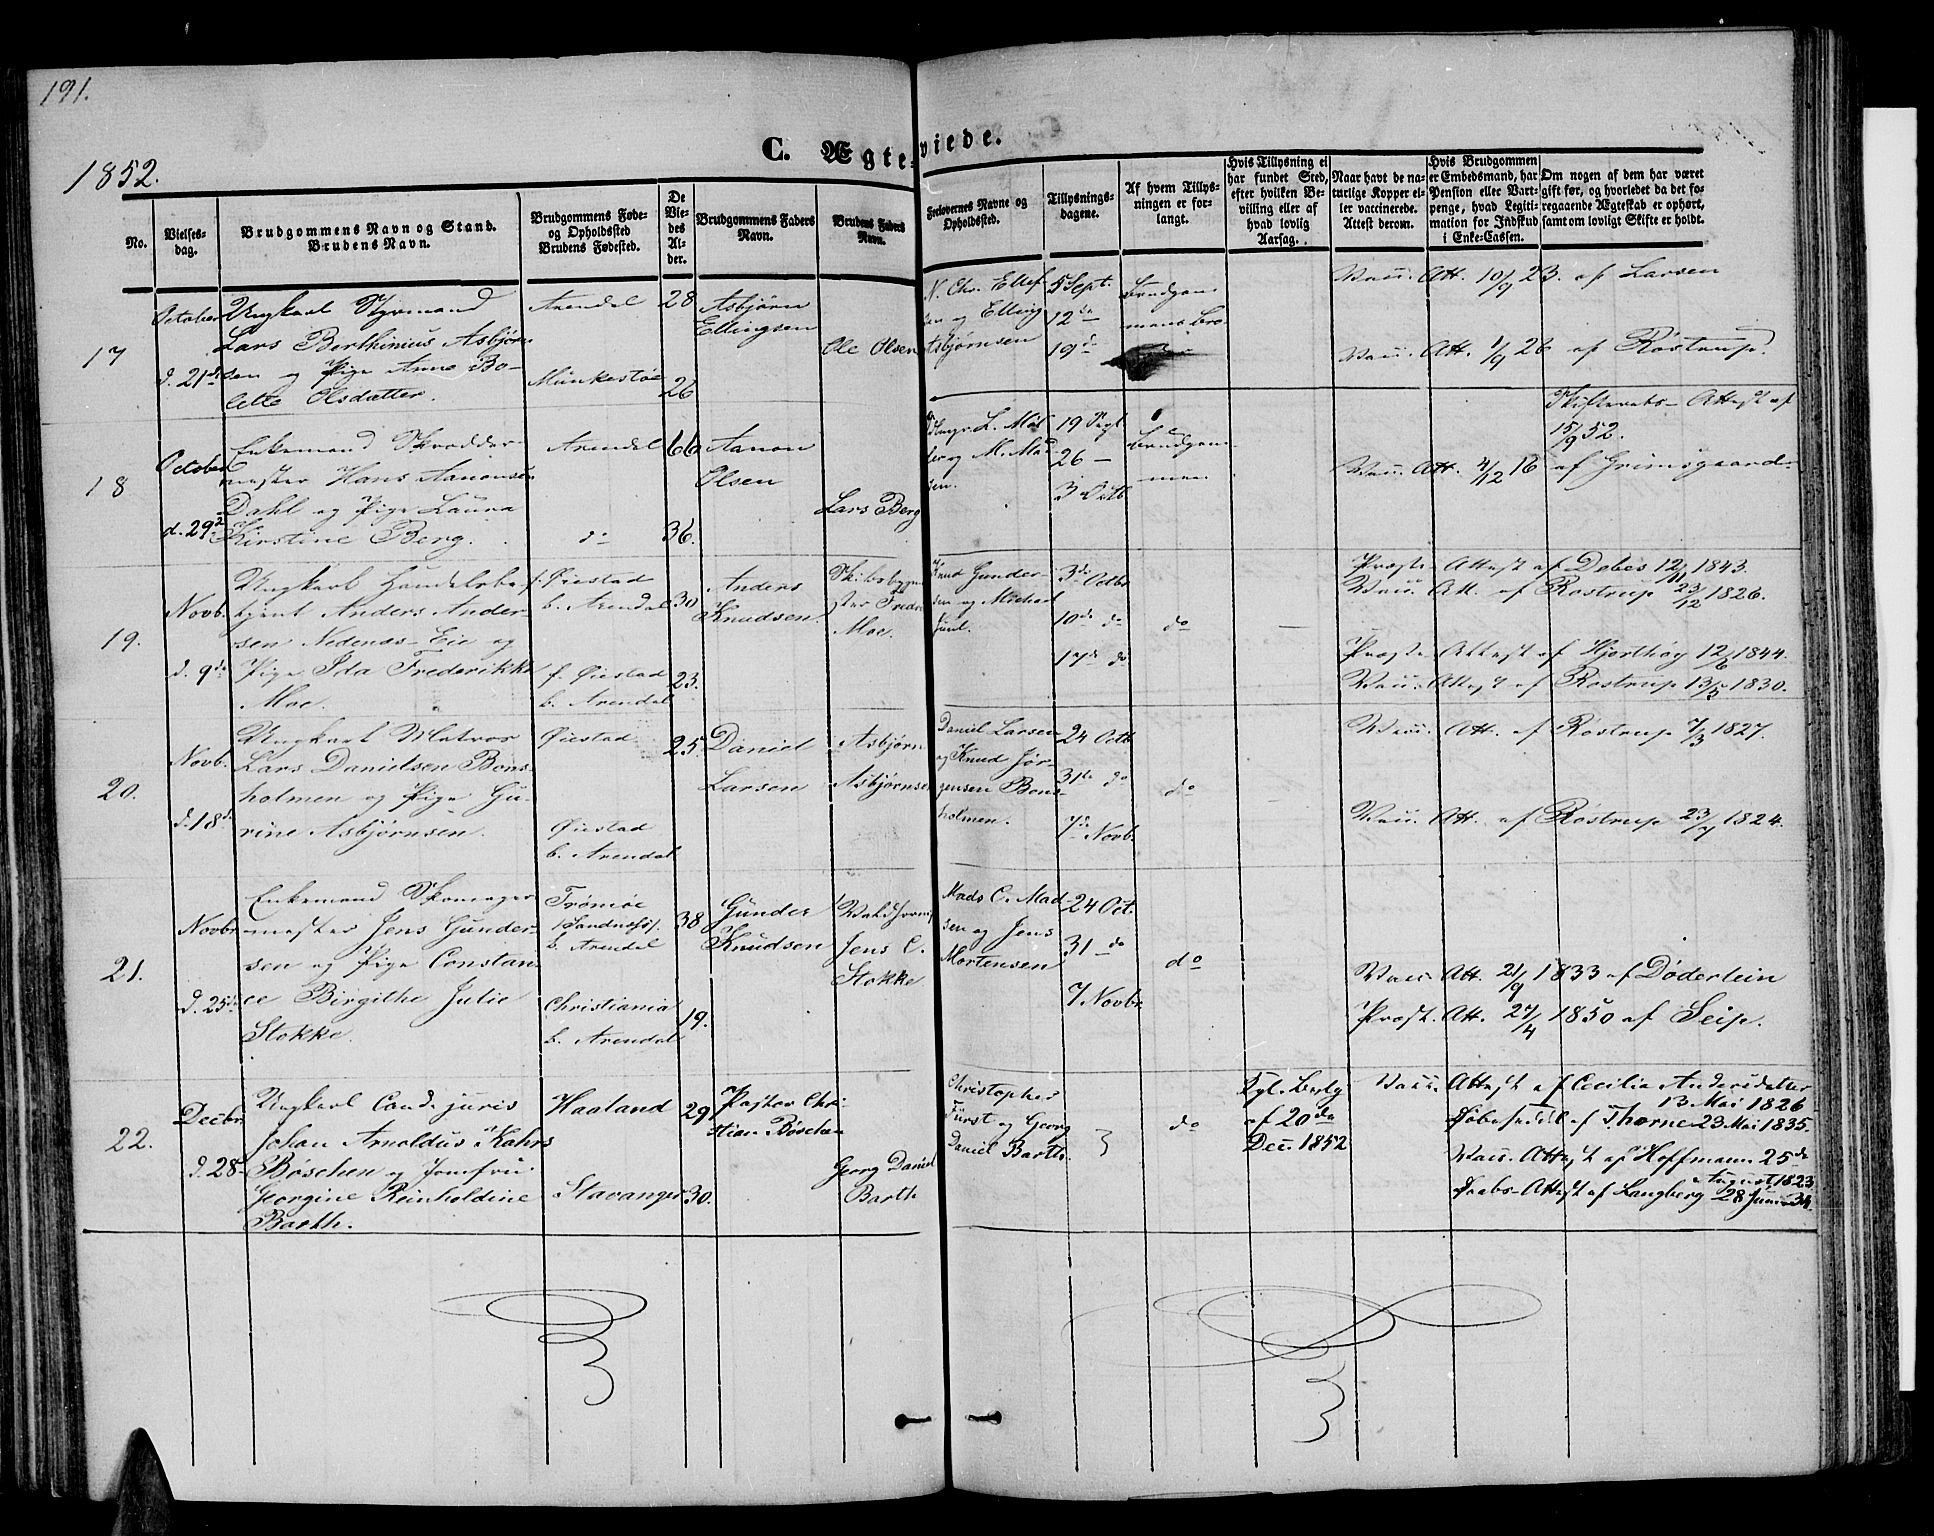 191.
C. Ægteviede.
1852.
No.
Vielsesdag.
Brudgommens Navn og Stand.
Brudens Navn.
Brudgommens Føde-
og Opholdssted
Brudens Fødested.
De
Vie-
des
Al-
der.
Brudgommens Faders
Navn.
Brudens Faders
Navn.
Forlovernes Navne og
Opholdssted.
Tillysnings-
dagene.
Af hvem Tillys-
ningen er for-
langt.
Hvis Tillysning ei
har fundet Sted,
efter hvilken Be-
villing eller af
hvad lovlig
Aarsag.
Naar havt de na-
turlige Kopper ei-
ler vaccinerede.
Attest derom.
Hvis Brudgommen
er Embedsmand, har
Pension eller Vart-
penge, hvad Legiti-
mation for Indskud
i Enke-Cassen.
Om nogen af dem har været
gift før, og hvorledet da det fo-
regaaende Ægteskab er ophørt,
samt om lovligt Skifte er holdt.
17
October
d. 21de
Ungkarl Styrmand
Lars Berthinius Asbjørn-
sen og Pige Anne Bo-
lette Olsdatter.
Arendal
Munkestøe
28
26
Asbjørn
Ellingsen
Ole Olsen
N. Chr. Ellef
sen og Elling
Asbjørnsen
5 Sept.
12 do
19 do
Brudgom-
mens Bro-
Vacc. Att. 10/9 23. af Larsen
Vacc. Att. 1/9 26 af Rostrup.
18
October
d. 29de
Enkemand Skrædder-
mester Hans Aanonsen
Dahl og Pige Laura
Kirstine Berg.
Arendal
do
66
36.
Aanon
Olsen
Lars Berg
L. Møl
ler og M. Mad
sen.
19 Sept
26 —
3 Octb
Brudgom-
men.
Skifterets-Attest af
15/9 52.
Vacc. Att. 4/12 16 af Grimsgaard
19.
Novb.
d. 9de
Ungkarl Handelsbe-
tjent Anders Ander-
sen Nedenæs-Eie og
Pige Ida Frederikke
Moe.
f. Øiestad
b. Arendal
f. Øiestad
b. Arendal
30
23.
Anders
Knudsen
Skibsbygme
ster Fredr.
Moe.
Knud Gunder-
sen og Michael
Juul.
3de Octbr
10de do
17de do
do
—
Præste-Attest af Dobes 12/11 1843.
Vacc. Att. af Rostrup 23/12 1826.
Præste-Attest af Hjorthøy 12/6 1844.
Vacc. Attest af Rostrup 13/5 1830.
20.
Novb.
d. 18de
Ungkarl Matros
Lars Danielsen Bons-
holmen og Pige Gu-
rine Asbjørnsen.
Øiestad
Øiestad
b. Arendal
25.
Daniel
Larsen
Asbjørn
Asbjørnsen
Daniel Larsen
og Knud Jør-
gensen Bons-
holmen.
24 Octb
31te do
7de Novb.
do
—
Vacc. Att. af Rostrup 7/3 1827.
Vacc. Att. af Rostrup 23/7 1824.
21.
Novbr
d. 25de
Enkemand Skomager
mester Jens Gunder-
sen og Pige Constan-
ce Birgithe Julie
Stokke.
Tromøe
/Sandnæs/.
b. Arendal
Christiania
b. Arendal
38
19.
Gunder
Knudsen
Jens C.
Stokke
Mads C. Mad
sen og Jens
Mortensen
24 Oct.
31 do
7 Novbr
do
Vacc. Att. 21/9 1833 af Døderlein
Præst. Att. 27/4 1850 af Seip.
22.
Decbr
d. 28
Ungkarl Cand. juris
Johan Arnoldus Kahrs
Bøschen og Jomfru
Georgine Reinholdine
Barth.
Haaland
Stavanger
29
30.
Pastor Chri-
stian Bøschen
Georg Daniel
Barth
Christopher
Fürst og Georg
Daniel Barth.
do
Kgl. Bevlg
af 20de
Dec. 1852
Vacc. Attest af Cecilia Andersdatter
13 Mai 1826
Døbeseddel af Thorne 23 Mai 1835.
Vacc. Attest af Hoffmann 25de
August 1823
Daabs-Attest af Langberg 28 Juni 34.